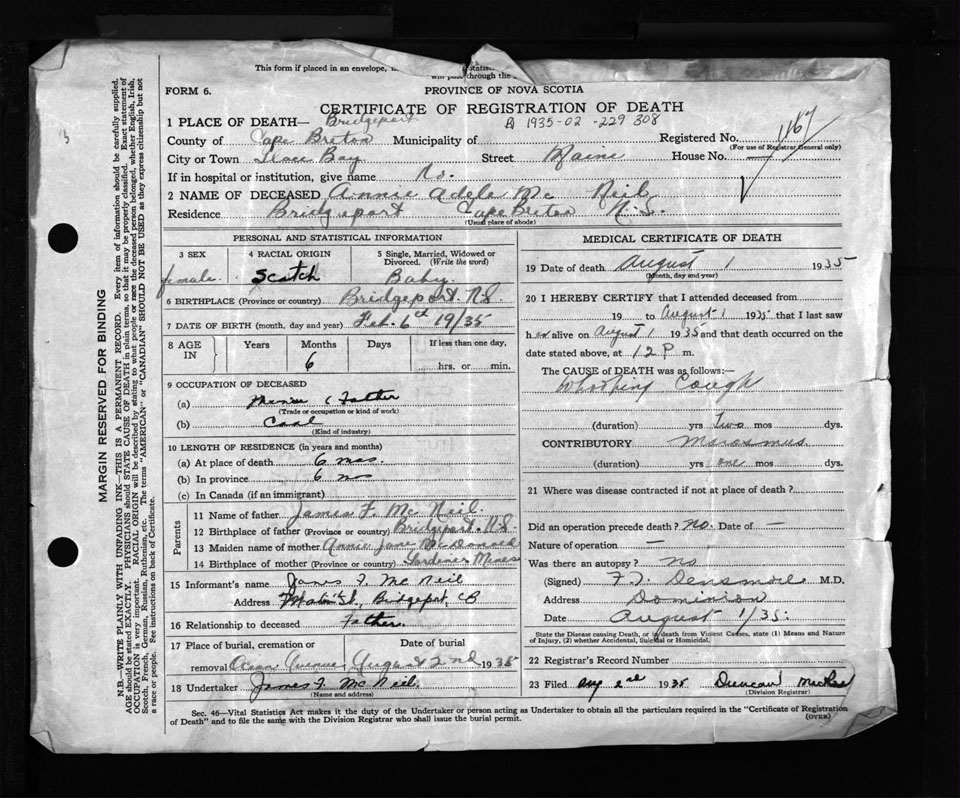 This form if placed in an envelope,
through the
FORM 6.
PROVINCE OF NOVA SCOTIA
CERTIFICATE OF REGISTRATION OF DEATH
1 PLACE OF DEATH— Bridgeport. 1935-02-229 308
County of Cape Breton Municipality of Registered No. 1167
(For use of Registrar General only)
City or Town Glace Bay Street Maine House No. —
If in hospital or institution, give name No.
2 NAME OF DECEASED Annie Adele Mc Neil
Residence Bridgeport Cape Breton N.S.
(Usual place of abode)
PERSONAL AND STATISTICAL INFORMATION
3 SEX 4 RACIAL ORIGIN 5 Single, Married, Widowed or Divorced. (Write the word)
female Scotch Baby
6 BIRTHPLACE (Province or country) Bridgeport. N.S.
7 DATE OF BIRTH (month, day and year) Feb. 6th 19/35
8 AGE IN Years Months Days If less than one day,
6 hrs. or min.
9 OCCUPATION OF DECEASED
(a) Miner (Father
(Trade or occupation or kind of work)
(b) Coal
(Kind of industry)
10 LENGTH OF RESIDENCE (in years and months)
(a) At place of death 6 mos.
(b) In province 6 mo
(c) In Canada (if an immigrant)
Parents
11 Name of father James F. Mc Neil.
12 Birthplace of father (Province or country) Bridgeport, N.S.
13 Maiden name of mother Annie Jane McDonald
14 Birthplace of mother (Province or country) Gardiner Mines
15 Informant's name James F. Mc Neil
Address Main St., Bridgeport, CB
16 Relationship to deceased Father.
17 Place of burial, cremation or removal Date of burial
August 2nd 1935
18 Undertaker James F. Mc Neil.
(Name and address)
MEDICAL CERTIFICATE OF DEATH
19 Date of death August 1 1935
(Month, day and year)
20 I HEREBY CERTIFY that I attended deceased from
19 to August 1 1935 that I last saw
her alive on August 1 1935 and that death occurred on
date stated above, at 12 P m.
The CAUSE of DEATH was as follows:—
Whooping Cough
(duration) yrs Two mos dys.
CONTRIBUTORY Marasmus
(duration) yrs one mos dys.
21 Where was disease contracted if not at place of death?
Did an operation precede death? no. Date of —
Nature of operation —
Was there an autopsy? no
(Signed) F. J. Densmore M.D.
Address Dominion
Date August 1/35.
State the Disease causing Death, or, if death from Violent Causes, state (1) Means and Nature
of Injury, (2) whether Accidental, Suicidal or Homicidal.
22 Registrar's Record Number
23 Filed Aug 2nd 1935 Duncan MacRae
(Division Registrar)
Sec. 46—Vital Statistics Act makes it the duty of the Undertaker or person acting as Undertaker to obtain all the particulars required in the "Certificate of Registration
of Death" and to file the same with the Division Registrar who shall issue the burial permit.
(OVER)
MARGIN RESERVED FOR BINDING
N.B.—WRITE PLAINLY WITH UNFADING INK—THIS IS A PERMANENT RECORD. Every item of information should be carefully supplied.
AGE should be stated EXACTLY. PHYSICIANS should STATE CAUSE OF DEATH in plain terms, so that it may be properly classified. Exact statement of
OCCUPATION is very important. RACIAL ORIGIN will be described by stating to what people or race the deceased person belonged, whether English, Irish,
Scotch, French, German, Russian, Ruthenian, etc. The terms "AMERICAN" or "CANADIAN" SHOULD NOT BE USED as they express citizenship but not
a race or people. See instructions on back of Certificate.